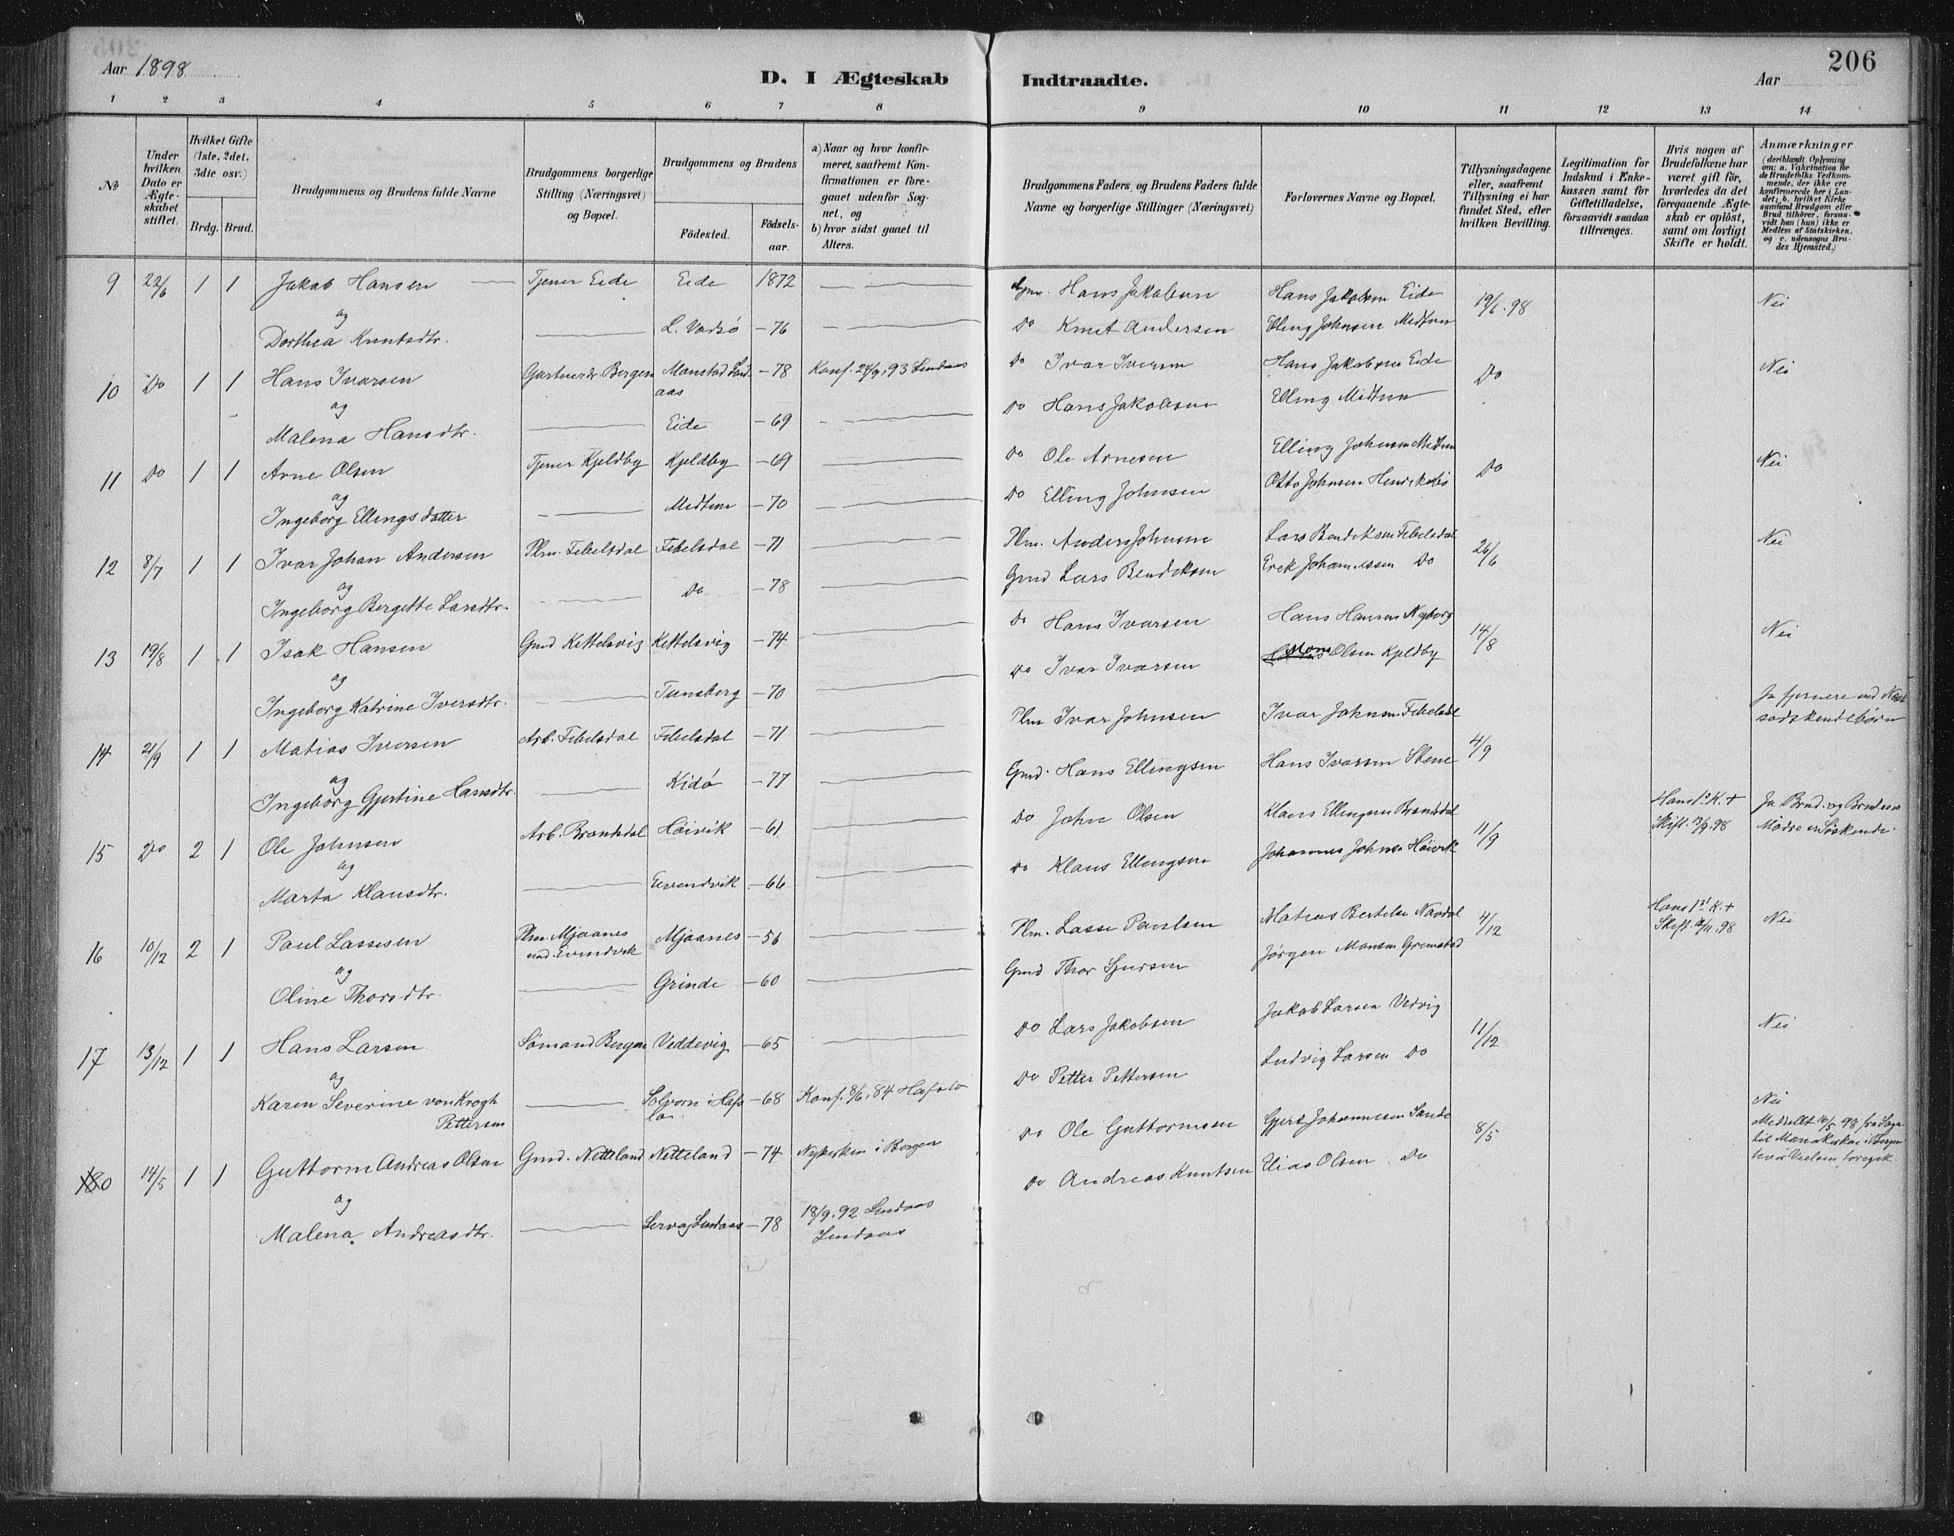 206
Aar 1898
D. I Ægteskab Indtraadte.
Aar
1 2 3 4 5 6 7 8 9 10 11 12 13 14
No
Under hvilken Dato er Ægteskabet stiftet.
Hvilket Gifte (1ste, 2det, 3die osv.)
Brdg. Brud.
Brudgommens og Brudens fulde Navne
Brudgommens borgerlige Stilling (Næringsvei) og Bopæl.
Brudgommens og Brudens
Fødested. Fødselsaar.
a) Naar og hvor konfirmeret, saafremt Konfirmationen er foregaaet udenfor Sognet, og
b) hvor sidst gaaet til Alters.
Brudgommens Faders, og Brudens Faders fulde Navne og borgerlige Stillinger (Næringsvei)
Forlovernes Navne og Bopæl.
Tillysningsdagene eller, saafremt Tillysning ei har fundet Sted, efter hvilken Bevilling.
Legitimation for Indskud i Enkekassen samt for Giftetilladelse, forsaavidt saadan tiltrænges.
Hvis nogen af Brudefolkene har været gift før, hvorledes da det foregaaende Ægteskab er opløst, samt om lovligt Skifte er holdt.
Anmærkninger
(deriblandt Oplysning om: a. Vakcination for de Brudefolks Vedkommende, der ikke ere konfirmerede her i Landet; b. hvilket Kirkesamfund Brudgom eller Brud tilhører, forsaavidt han (hun) ikke er Medlem af Statskirken, og c. udensogns Brudes Hjemsted.)
9 22/6 1 1 Jakob Hansen Tjener Eide Eide 1872 Gm. Hans Jakobsen Hans Jakobsen Eide 19/6.98 Nei
og
Dorthea Knutsdtr. L. Vadsø -76 Do Knut Andersen Elling Johnsen Midtun
10 Do 1 1 Hans Ivarsen Gartnerdr. Bergen Monstad Lindaas -78 Konf. 24/9,93 Lindaas Do Ivar Iversen Hans Jakobsen Eide Do Nei
og
Malena Hansdtr. Eide -69 Do Hans Jakobsen Elling Midtun
11 Do 1 1 Arne Olsen Tjener Kjeldby Kjeldby -69 Do Ole Arnesen Elling Johnsen Midtun Do Nei
og
Ingeborg Ellingsdatter Midtun -70 Do Elling Johnsen Otto Johnsen
12 8/7 1 1 Ivar Johan Andersen Plm. Febelsdal Febelsdal -71 Plm. Anders Johnsen Lars Bendiksen Febelsdal 26/6 Nei
og
Ingeborg Bergette Larsdtr. Do -78 Gmd Lars Bendiksen Erek Johannessen Do
13 19/8 1 1 Isak Hansen Gmd Kettelsvig Kettelsvig -74 Do Hans Ivarsen Hans Hansen Nyborg 14/8 Nei
og
Ingeborg Katrine Iversdtr. Tunsberg -70 Do Ivar Ivarsen Mons Olsen Kjeldby
14 21/9 1 1 Matias Iversen Arb. Febelsdal Febelsdal -71 Plm Ivar Johnsen Ivar Johnsen Febelsdal 4/9 Ja fjernere end Næstsødskendebørn
og
Ingeborg Gjertine Hansdtr. Kidø -77 Gmd. Hans Ellingsen Hans Ivarsen Stene
15 Do 2 1 Ole Johnsen Arb. Brandsdal Høivik -61 Do John Olsen Klaus Ellingsen Brandsdal 11/9 Hans 1ste K. + Skift. 13/9.98 Ja Brud. og Brudens Mødre er Søskende.
og
Marta Klausdtr. Evendvik -66 Do Klaus Ellingsen Johannes Johnsen Høivik
16 10/12 2 1 Paul Lassesen Plm. Mjaanes ind. Evendvik Mjaanes -56 Plm. Lasse Paulsen Matias Bertelsen Navdal 4/12 Hans 1st K. + Skift. 98 Nei
og
Oline Thorsdtr. Grinde -60 Gmd Thor Sjursen Jørgen Monsen Grimstad
17 13/12 1 1 Hans Larsen Sømand Bergen Veddevig -65 Do Lars Jakobsen Jakob Larsen Vedvig 11/12 Nei
og
Karen Severine von Krogh Pettersen Solvorn i Hafslo -68 Konf. 8/6,84 Hafslo Do Petter Pettersen Ludvig Larsen Do
14/5 1 1 Guttorm Andreas Olsen Gmd. Netteland Netteland -74 Nykirken i Bergen Do Ole Guttormsen Gjert Johannessen Sande 8/5 Nei
Meddelt 10/5 98 fra Sogn til Mariakirken i Bergen hvor Vielsen foregik.
og
Malena Andreasdtr. Lervag Lindaas -78 18/9.92 Lindaas Lindaas Do Andreas Knutsen Elias Olsen Do